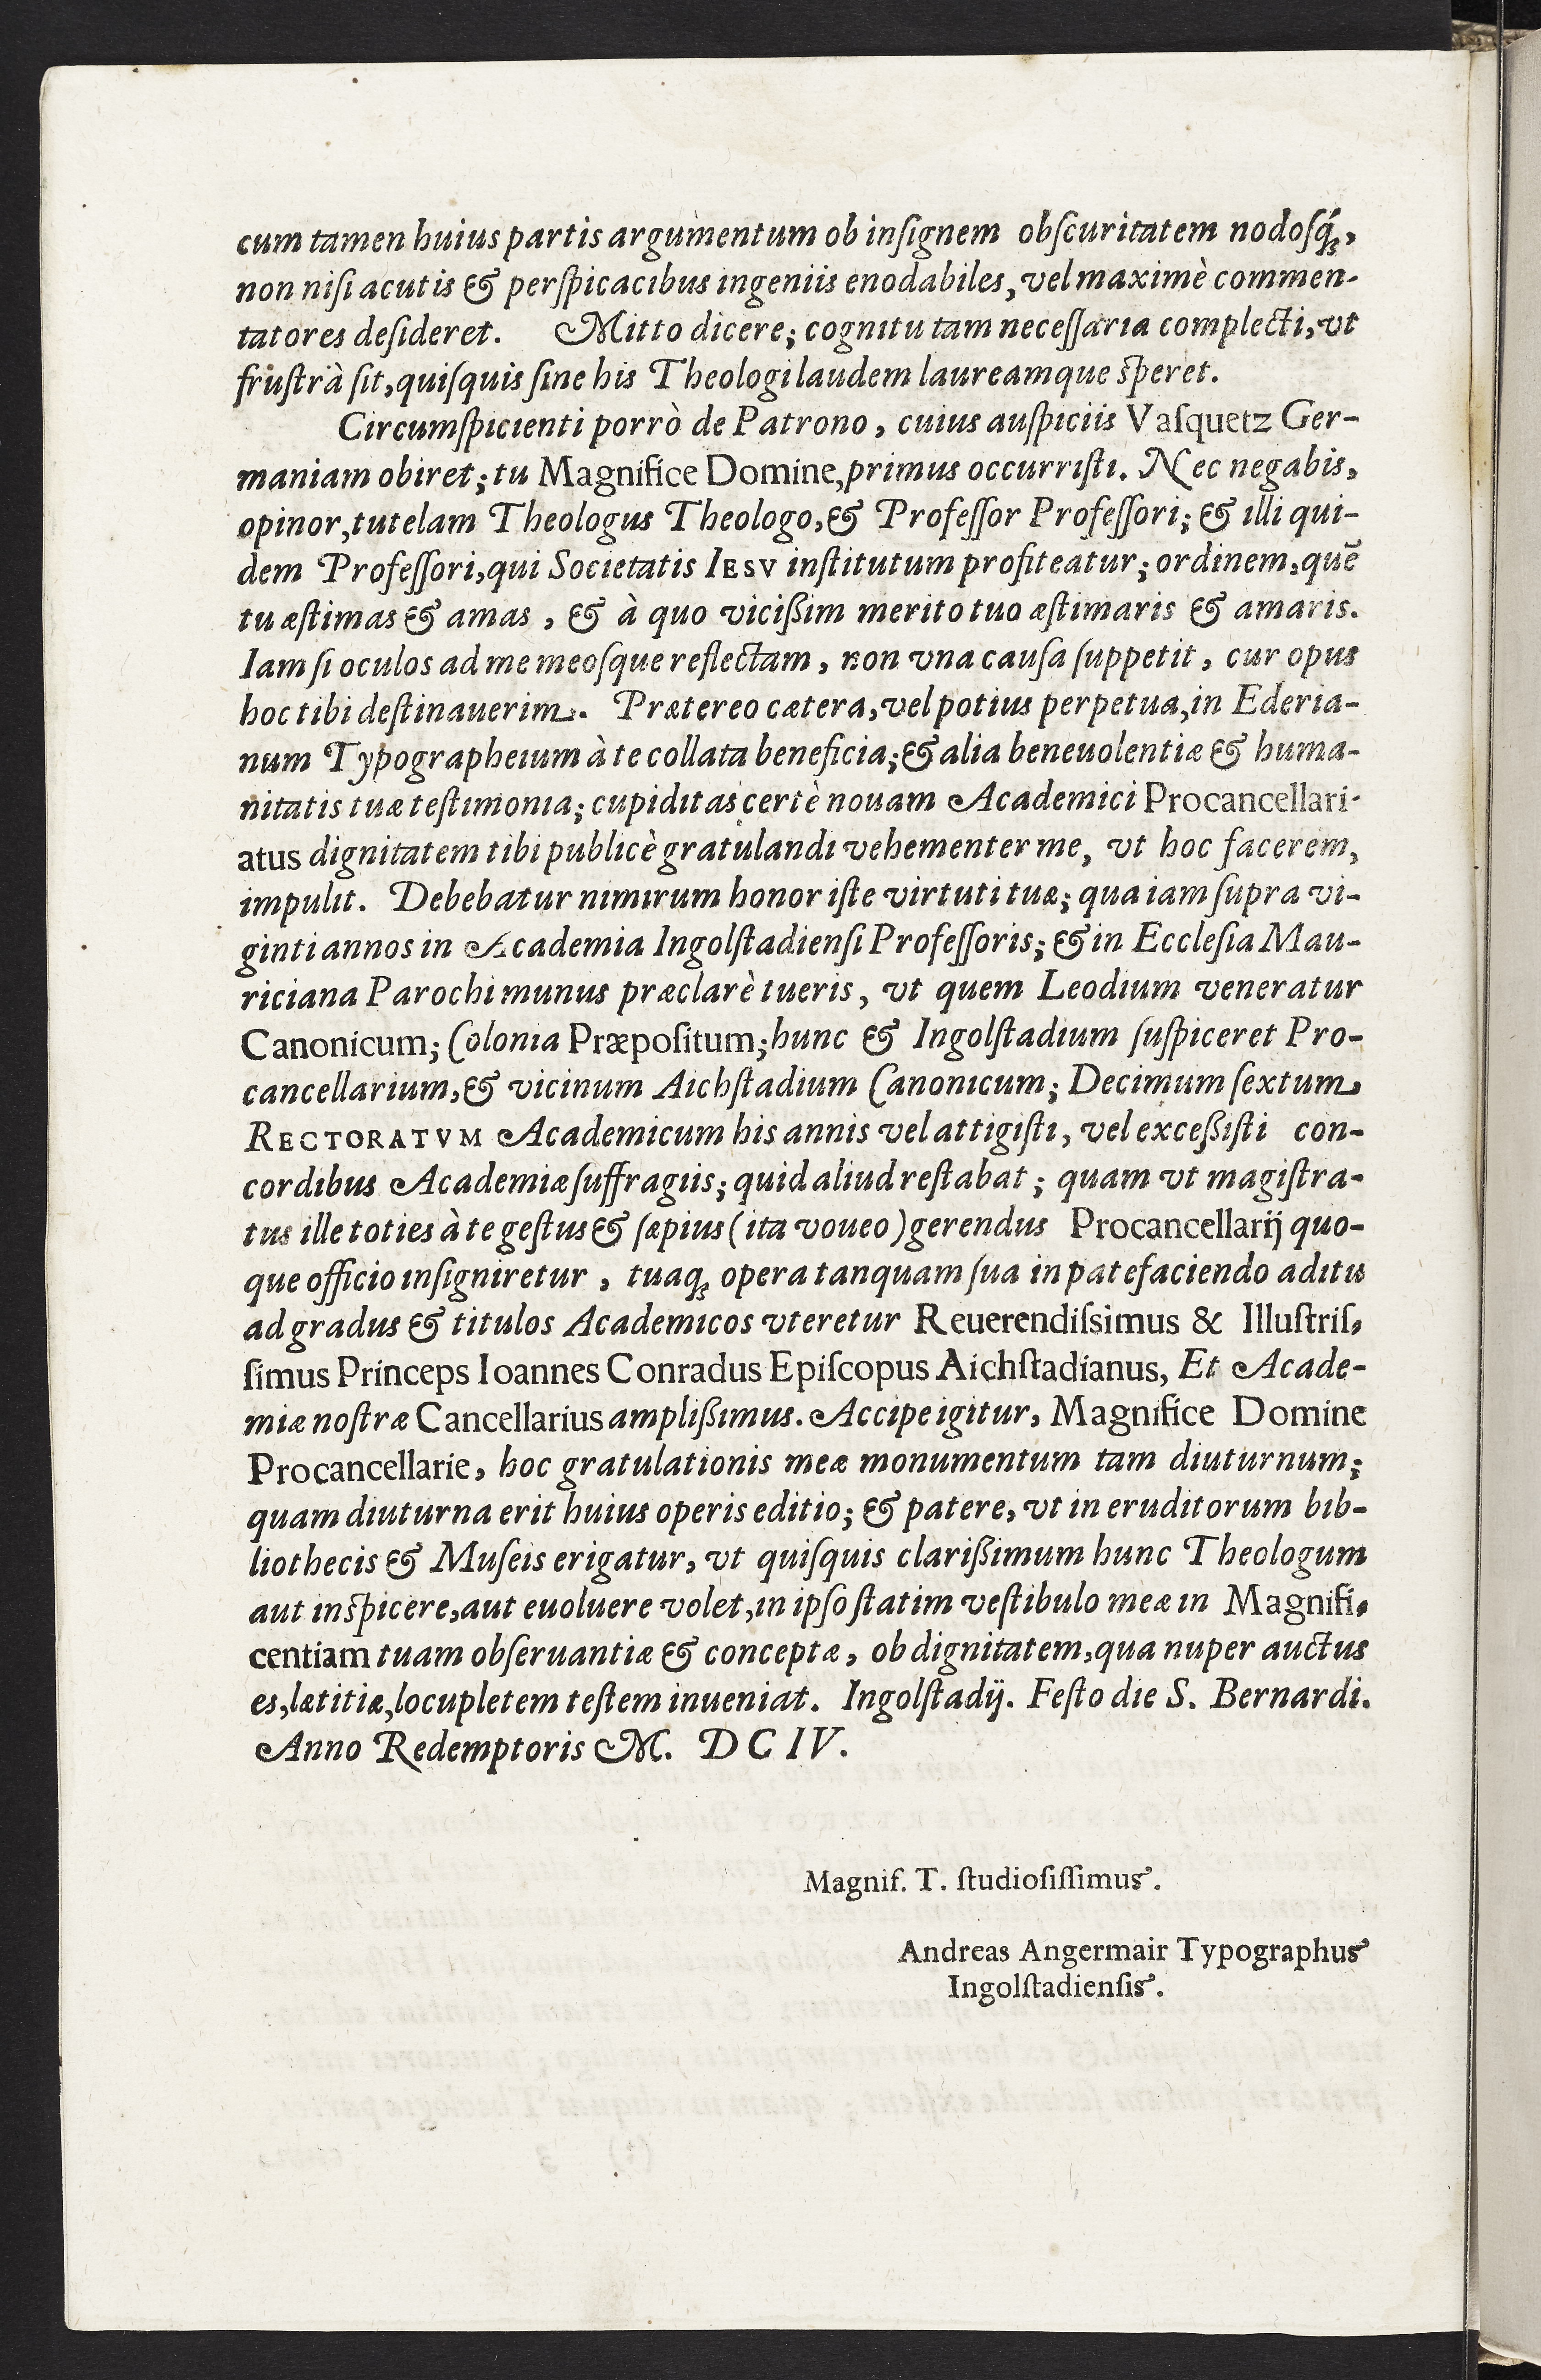 cum tamen huius partis argumentum ob inſignem obſcuritatem nodoſq́ꝫ,
non niſi acutis & perſpicacibus ingeniis enodabiles, vel maximè commen-
tatores deſideret. Mitto dicere; cognitu tam neceſſaria complecti, vt
fruſtrà ſit, quiſquis ſine his Theologi laudem laureamque ſperet.
Circumſpicienti porrò de Patrono, cuius auſpiciis Vaſquetz Ger-
maniam obiret; tu Magnifice Domine, primus occurriſti. Nec negabis,
opinor, tutelam Theologus Theologo, & Profeſſor Profeſſori; & illi qui-
dem Profeſſori, qui Societatis IESV inſtitutum profiteatur; ordinem, quē
tu æſtimas & amas, & à quo viciſſim merito tuo æſtimaris & amaris.
Iam ſi oculos ad me meoſque reflectam, non vna cauſa ſuppetit, cur opus
hoc tibi deſtinauerim. Prætereo cætera, vel potius perpetua, in Ederia-
num Typographeium à te collata beneficia; & alia beneuolentiæ & huma-
nitatis tuæ teſtimonia; cupiditas certè nouam Academici Procancellari-
atus dignitatem tibi publicè gratulandi vehementer me, vt hoc facerem,
impulit. Debebatur nimirum honor iſte virtuti tuæ; qua iam ſupra vi-
ginti annos in Academia Ingolſtadienſi Profeſſoris; & in Eccleſia Mau-
riciana Parochi munus præclarè tueris, vt quem Leodium veneratur
Canonicum; Colonia Præpoſitum; hunc & Ingolſtadium ſuſpiceret Pro-
cancellarium, & vicinum Aichſtadium Canonicum; Decimum ſextum
RECTORATVM Academicum his annis vel attigiſti, vel exceſſiſti con-
cordibus Academiæ ſuffragiis; quid aliud reſtabat; quam vt magiſtra-
tus ille toties à te geſtus & ſæpius (ita voueo) gerendus Procancellarij quo-
que officio inſigniretur, tuaqꝫ opera tanquam ſua in patefaciendo aditu
ad gradus & titulos Academicos vteretur Reuerendiſsimus & Illuſtriſ-
ſimus Princeps Ioannes Conradus Epiſcopus Aichſtadianus, Et Acade-
miæ noſtræ Cancellarius ampliſſimus. Accipe igitur, Magnifice Domine
Procancellarie, hoc gratulationis meæ monumentum tam diuturnum;
quam diuturna erit huius operis editio; & patere, vt in eruditorum bib-
liothecis & Muſeis erigatur, vt quiſquis clariſſimum hunc Theologum
aut inſpicere, aut euoluere volet, in ipſo ſtatim veſtibulo meæ in Magnifi-
centiam tuam obſeruantiæ & conceptæ, ob dignitatem, qua nuper auctus
es, lætitiæ, locupletem teſtem inueniat. Ingolſtadij. Feſto die S. Bernardi.
Anno Redemptoris M. DC IV.
Magnif. T. ſtudioſiſſimus.
Andreas Angermair Typographus
Ingolſtadienſis.